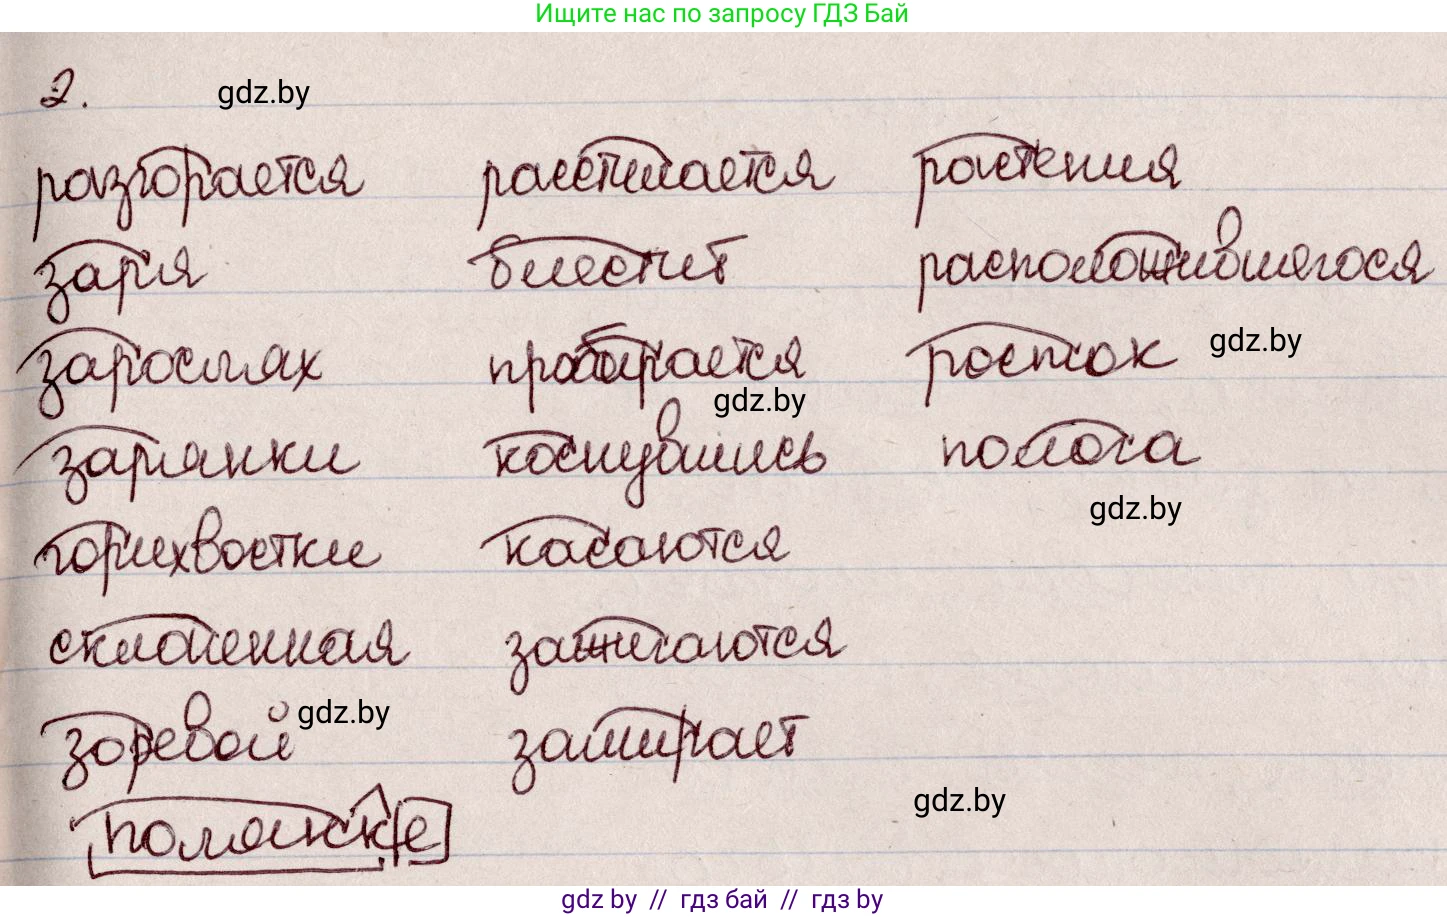 Ищите нас по запросу ГДЗ Бай
2. gdz.by
разгорается расстилается растения
заря блестит расположившегося
зарослях пробирается росток gdz.by
gdz.by
зарянки коснувшись полога
gdz.by
горихвостки касаются
склоненная зажигаются
зоревой gdz.by замирает
gdz.by
полянке
gdz by // гдз бай // гдз by